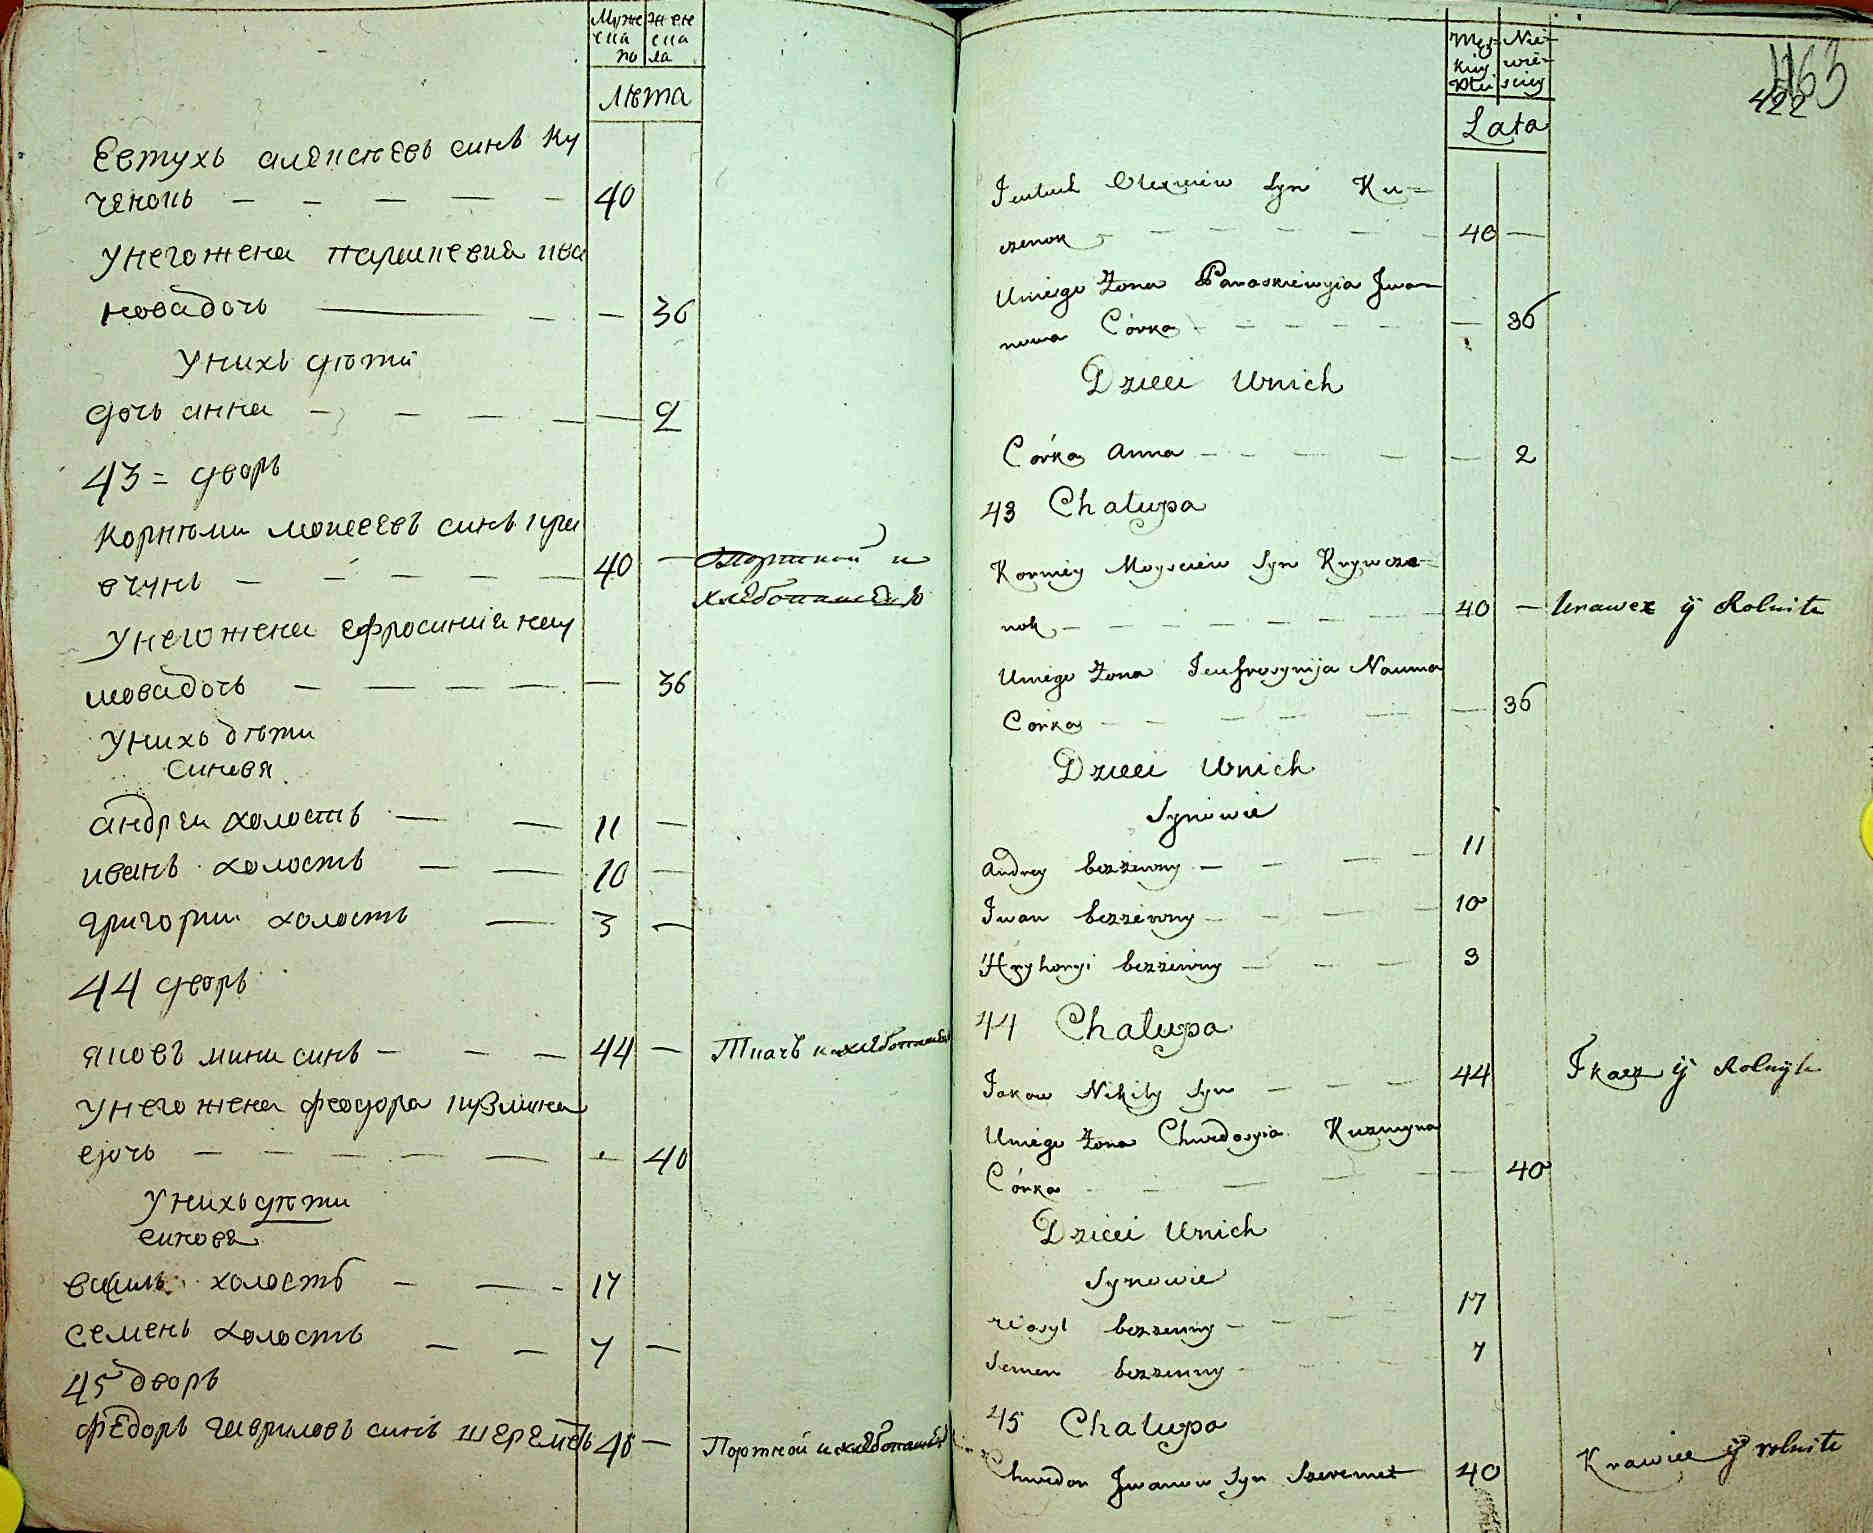 Муже жен
ска ска
го ла
Лѣта
Евтухъ алексѣевъ синъ Ку
ченокъ — — — — — 40
Унего жена параскевия ива
нова дочь — — — 36
Унихъ дѣти
дочь анна — — — — — 2
43 = дворъ
Корнѣи моисеевъ синъ кри
вчунъ — — — — — 40 — Портной и
хлѣбопашецъ
Унего жена ефросиния нау
мова дочь — — — — — 36
Унихъ дѣти
синовя
андреи холостъ — — 11 —
иванъ холостъ — — 10 —
григории холостъ — 3 —
44 дворъ
яковъ мики синъ — — — 44 — Ткачъ и хлѣбопашец
Унего жена феодора кузмина
дочь — — — — — — 40
Унихъ дѣти
синовя
василь холостъ — — - 17
семенъ холостъ — — 7 —
45 дворъ
Федоръ гавриловъ синъ шереметъ 40 — Портной и хлѣбопашец
Męz- Nie-
kiey wie-
Płci sciey
Lata
463
422
Jewtuch Olexiejew Syn Ku-
czenok — — — — — 40 —
Uniego Żona Paraskiewyia Jwa-
nowa Córka — — — — — 36
Dzieci Unich
Córka Anna — — — — — 2
43 Chalupa
Korniey Moysiejew Syn Krywcze-
nok — — — — — — 40 — Krawez ÿ Rolnik
Uniego Żona Jeufrosynija Nauma
Corka — — — — — 36
Dzieci Unich
Synowie
Andrey bezżenny — — — — 11
Jwan bezżenny — — — — 10
Hryhoryi bezżenny — — — 3
44 Chalupa
Jakow Nikity Syn — — — 44 Tkacz ÿ Rolnyk
Uniego Żona Chwedosyia Kuzmyna
Córka — — — — — 40
Dzieci Unich
Synowie
Wasyl bezzenny — — — — 17
Semen bezzenny — — — 7
45 Chalupa
Chwedor Jwanow Syn Szeremet 40 Krawiec ÿ rolnik